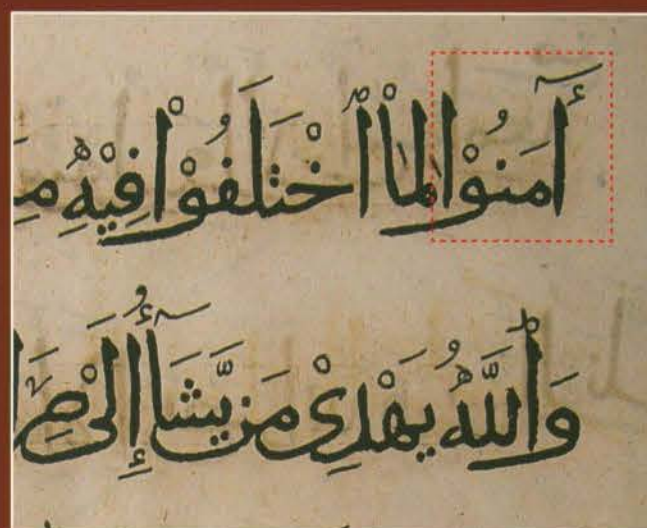 آمَنُوْا لِمَا اخْتَلَفُوْا فِيْهِ مِ
وَاللَّهُ يَهْدِىْ مَن يَّشَآءُ إِلَىْ صِرَا